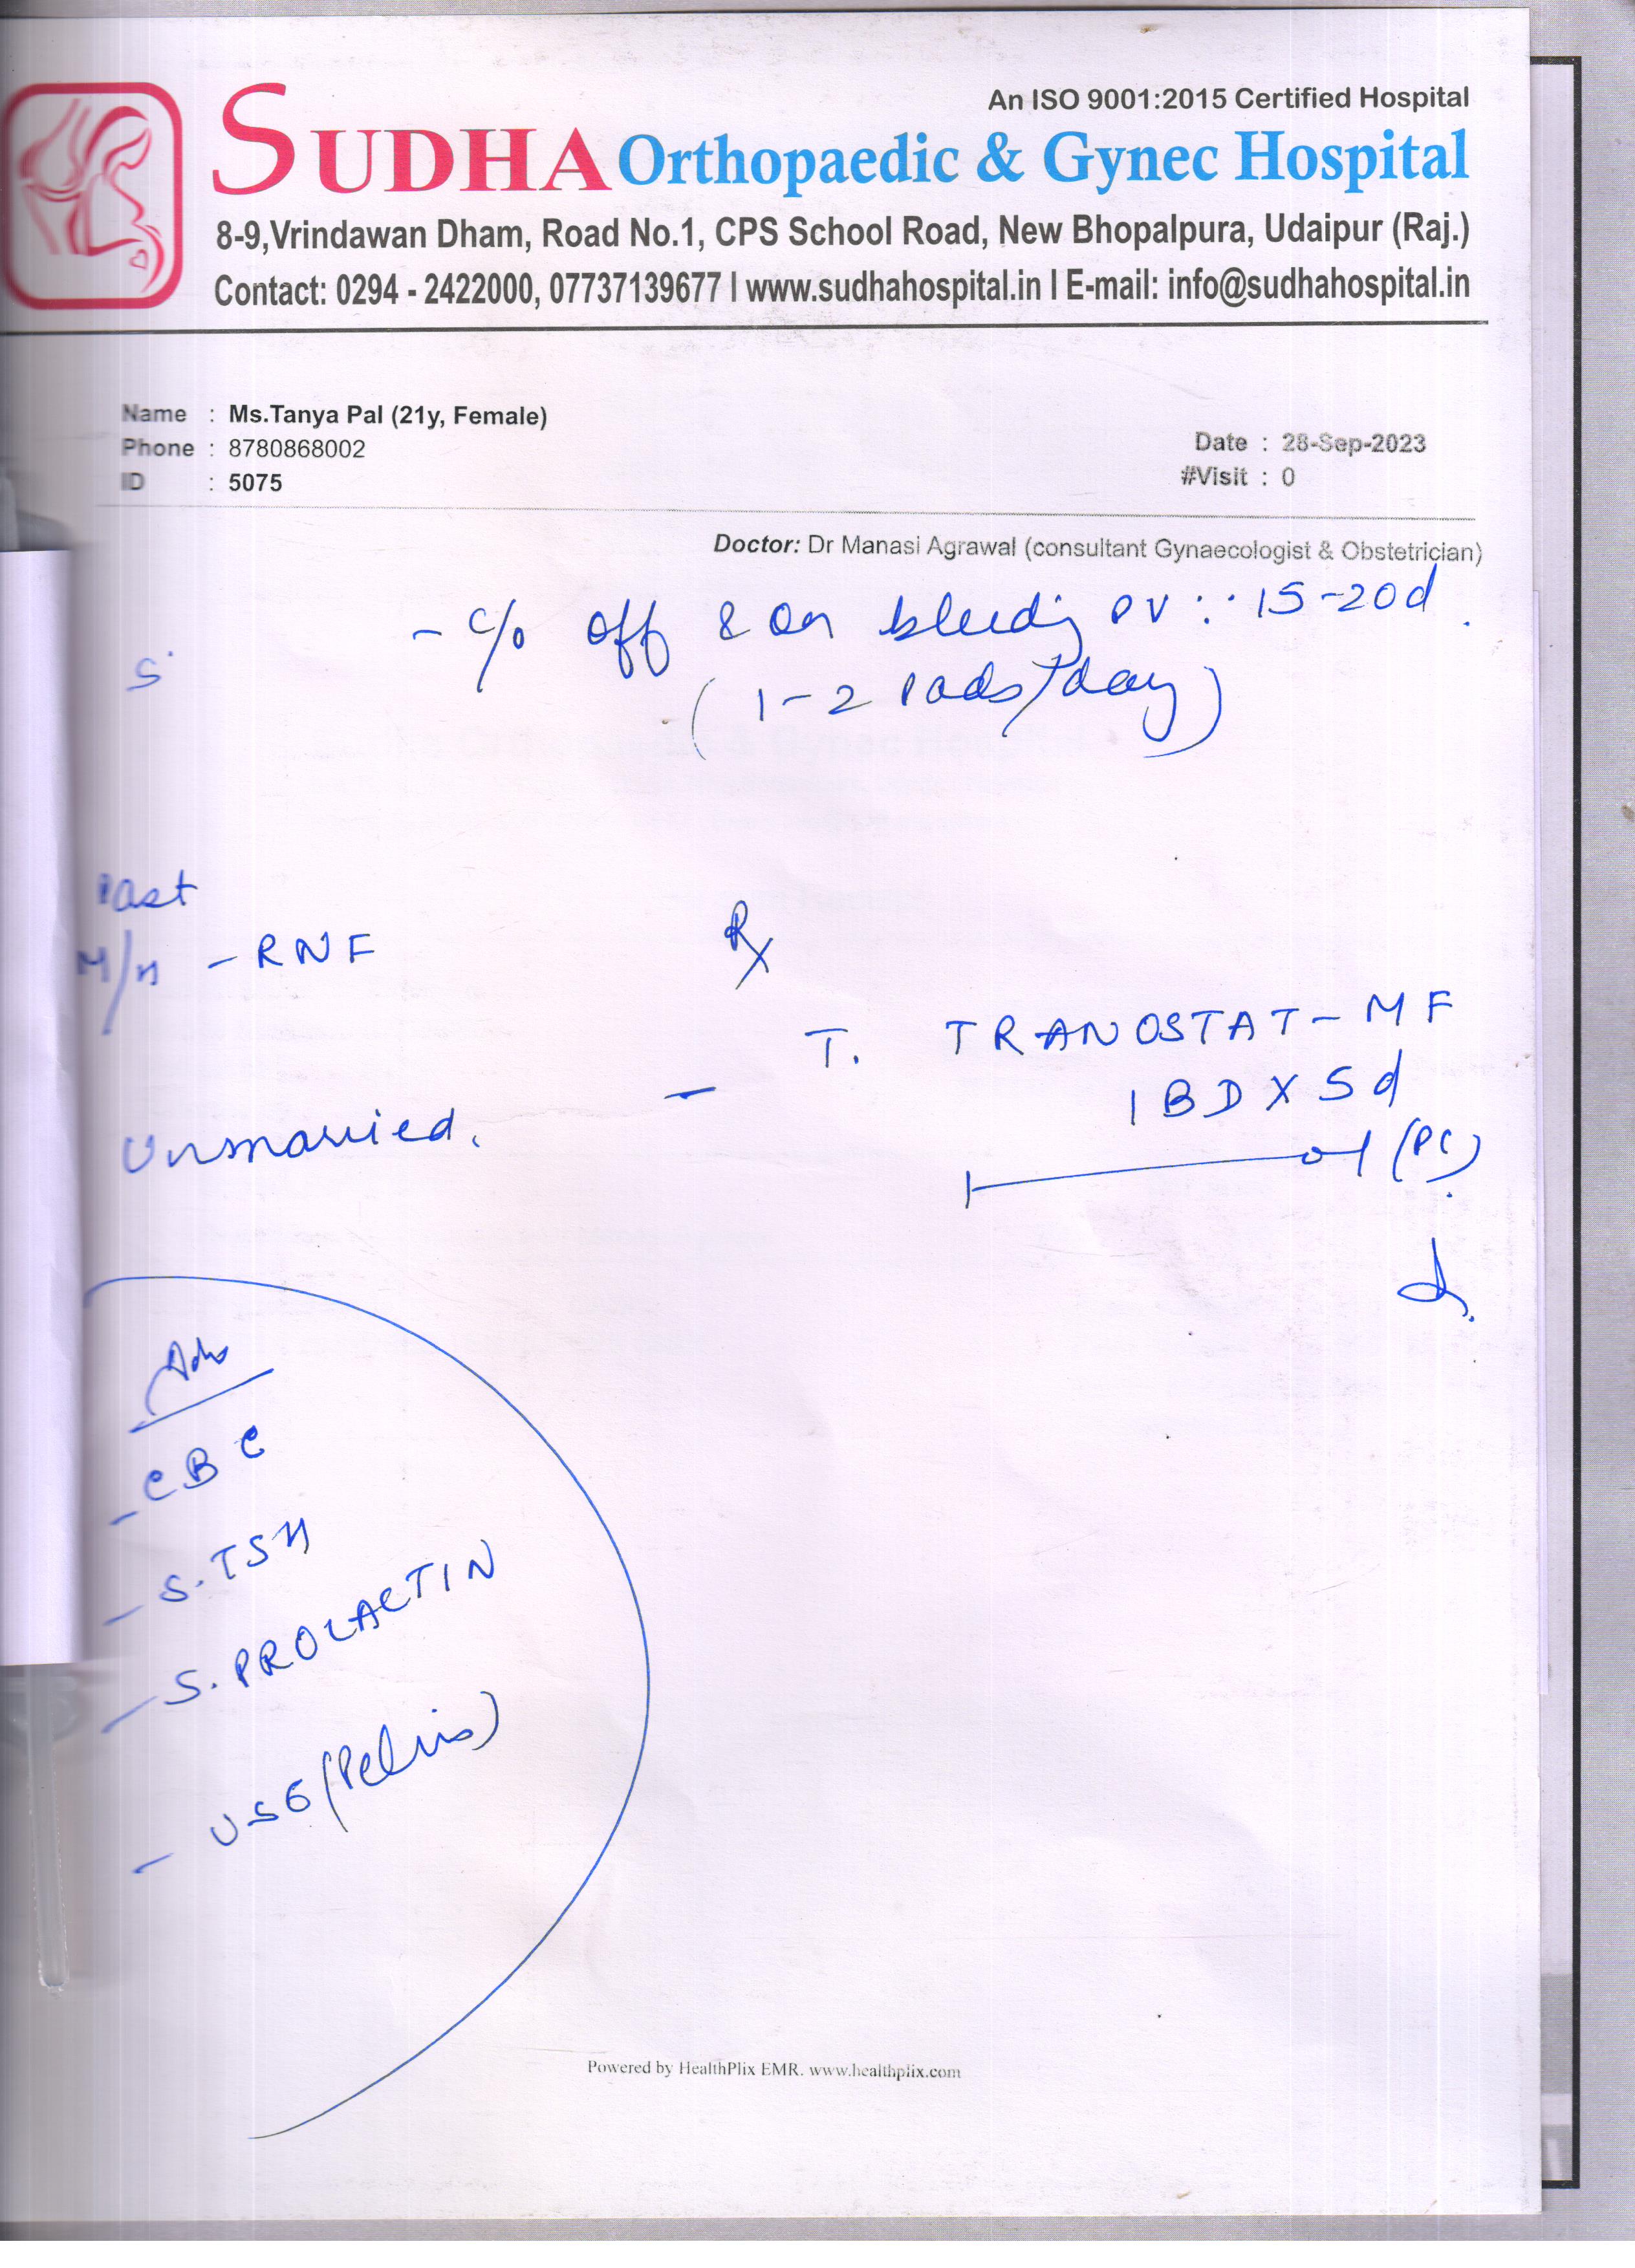 An ISO 9001:2015 Certified Hospital
SUDHA Orthopaedic & Gynec Hospital
8-9,Vrindawan Dham, Road No.1, CPS School Road, New Bhopalpura, Udaipur (Raj.)
Contact: 0294 - 2422000, 07737139677 I www.sudhahospital.in I E-mail: info@sudhahospital.in
Name : Ms.Tanya Pal (21y, Female)
Phone : 8780868002
Date : 28-Sep-2023
ID : 5075
#Visit : 0
Doctor: Dr Manasi Agrawal (consultant Gynaecologist & Obstetrician)
- c/o off & on bleeding PV : 15-20d.
(1-2 Pads/day)
Past
M/H - RNF
Rx
- T. TRANOSTAT-MF
1 BD X 5d
(PC)
Unmarried.
Adv
- CBC
- S.TSH
- S.PROLACTIN
- USG (Pelvis)
Powered by HealthPlix EMR. www.healthplix.com